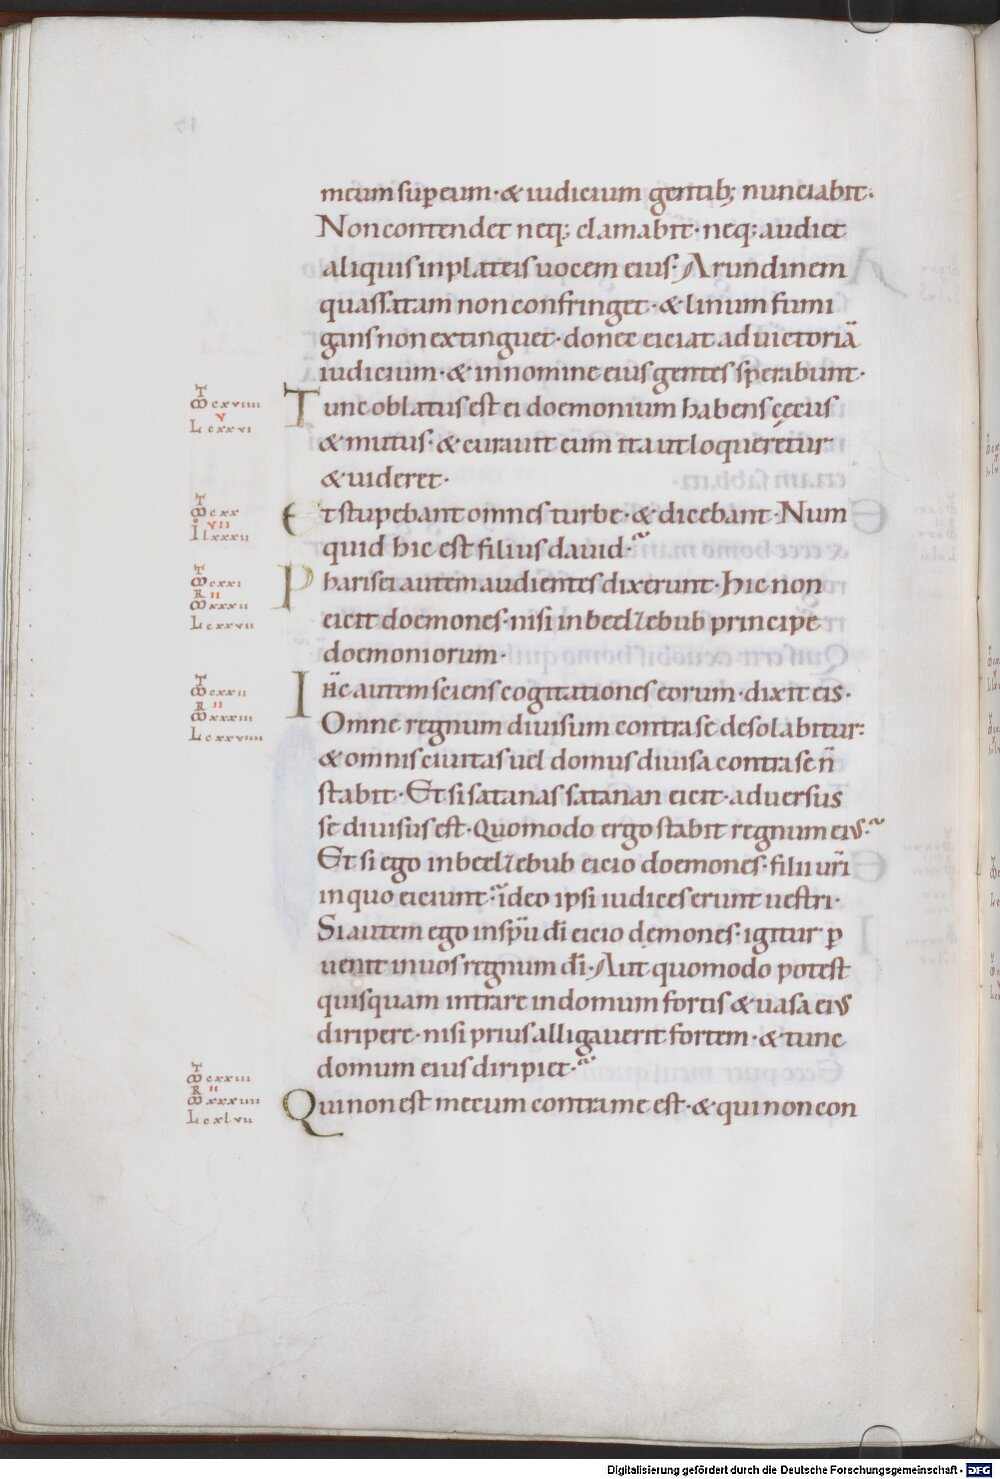 meum sup̄ eum · & iudicium gentib; nunciabit ·
Non contendet neq; clamabit · neq; audiet
aliquis in plateis uocem eius · Arundinem
quassatam non confringet · & linum fumi
gans non extinguet · donec eiciat ad uictoriā
iudicium · & in nomine eius gentes sperabunt ·
Tunc oblatus est ei doemonium habens cęcus
& mutus · & curauit eum ita ut loqueretur
& uideret ·
Et stupebant omnes turbe · & dicebant · Num
quid hic est filius dauid ·
Pharisei autem audientes dixerunt · Hic non
eicit doemones · nisi in beelzebub principe
doemoniorum ·
Ih̄c autem sciens cogitationes eorum · dixit eis ·
Omne regnum diuisum contra se desolabitur :
& omnis ciuitas uel domus diuisa contra se n̄
stabit · Et si satanas satanan eicit · aduersus
se diuisus est · Quomodo ergo stabit regnum eius ·
Et si ego in beelzebub eicio doemones · filii ur̄i
in quo eiciunt · ideo ipsi iudices erunt uestri ·
Si autem ego in sp̄u dī eicio dęmones · igitur p
uenit in uos regnum dī · Aut quomodo potest
quisquam intrare in domum fortis & uasa eius
diripere · nisi prius alligauerit fortem · & tunc
domum eius diripiet ·
Qui non est mecum contra me est · & qui non con
cxviiii
v
L cxxvi
cxx
vii
I lxxxii
cxxi
R ii
xxxii
L cxxvii
cxxii
R ii
xxxiii
L cxxviiii
cxxiii
R ii
xxxiiii
L cxlvii
Digitalisierung gefördert durch die Deutsche Forschungsgemeinschaft - DFG